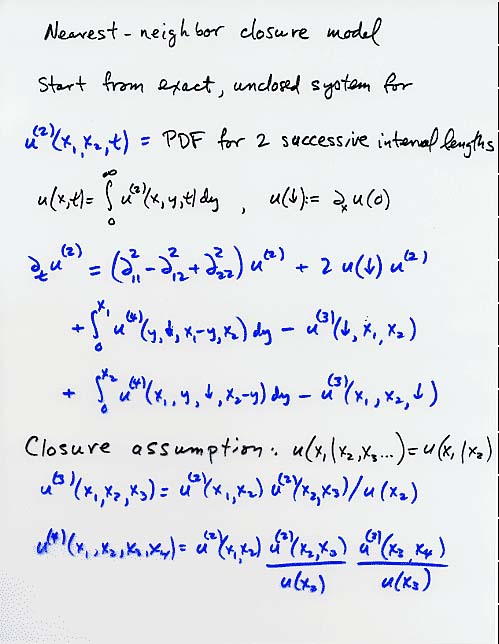 Nearest-neighbor closure model
Start from exact, unclosed system for
u^(2)(x₁,x₂,t) = PDF for 2 successive interval lengths
u(x,t) = ∫₀^∞ u^(2)(x,y,t) dy , u(↓) := ∂ₓu(0)
∂ₜu^(2) = (∂²₁₁ - ∂²₁₂ + ∂²₂₂) u^(2) + 2 u(↓) u^(2)
+ ∫₀^x₁ u^(4)(y,↓,x₁-y,x₂) dy - u^(3)(↓,x₁,x₂)
+ ∫₀^x₂ u^(4)(x₁,y,↓,x₂-y) dy - u^(3)(x₁,x₂,↓)
Closure assumption: u(x₁|x₂,x₃...) = u(x₁|x₂)
u^(3)(x₁,x₂,x₃) = u^(2)(x₁,x₂) u^(2)(x₂,x₃)/u(x₂)
u^(4)(x₁,x₂,x₃,x₄) = u^(2)(x₁,x₂) u^(2)(x₂,x₃)/u(x₂) u^(2)(x₃,x₄)/u(x₃)